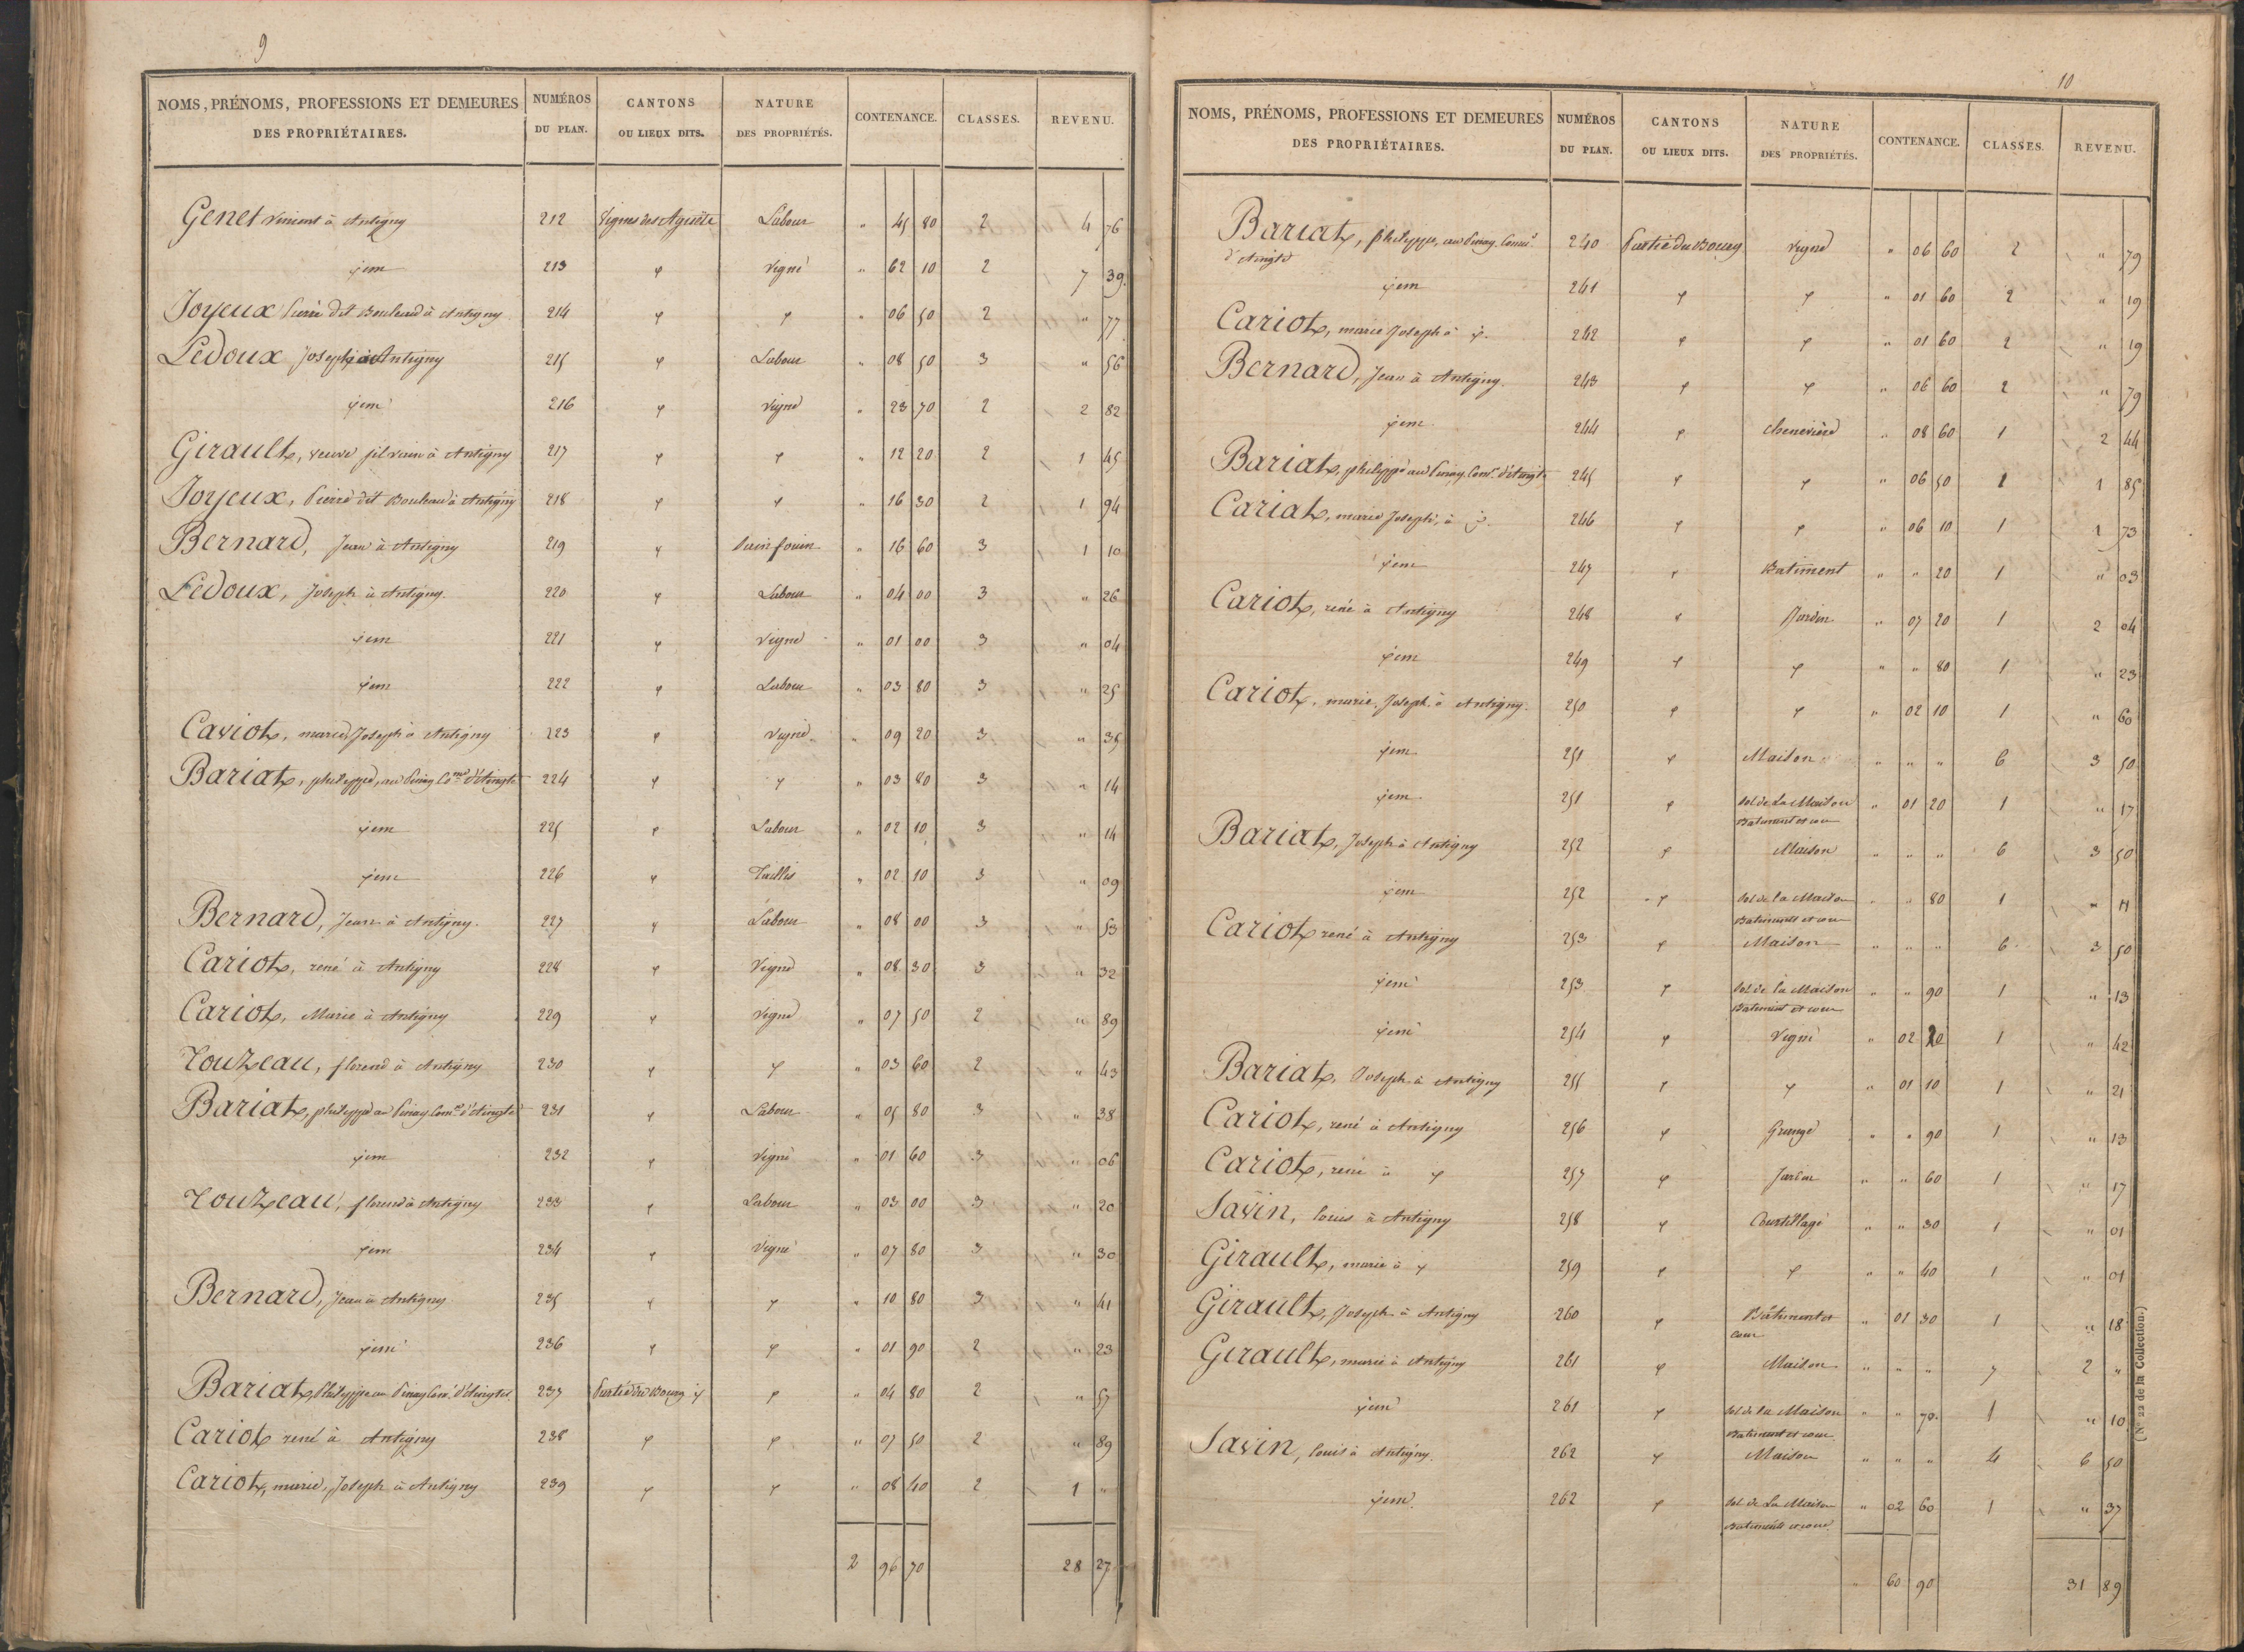 9
NOMS, PRÉNOMS, PROFESSIONS ET DEMEURES DES PROPRIÉTAIRES. NUMÉROS DU PLAN. CANTONS OU LIEUX DITS. NATURE DES PROPRIÉTÉS. CONTENANCE. CLASSES. REVENU.
Genet Vincent à Antigny 212 Vignes des Labour " 45 80 2 4 76
jem 213 φ Vigne " 62 10 2 7 39
Joyeux Pierre dit Bouleau à Antigny 214 φ φ " 06 50 2 " 77
Ledoux Joseph à Antigny 215 φ Labour " 08 50 3 " 56
jem 216 φ Vigne " 23 70 2 2 82
Girault, veuve silvain à Antigny 217 φ φ " 12 20 2 1 45
Joyeux, Pierre dit Bouleau à Antigny 218 φ φ " 16 30 2 1 94
Bernard, Jean à Antigny 219 φ Sainfouin " 16 60 3 1 10
Ledoux, Joseph à Antigny 220 φ Labour " 04 00 3 " 26
jem 221 φ Vigne " 01 00 3 " 04
jem 222 φ Labour " 03 80 3 " 25
Cariot, marie Joseph à Antigny 223 φ Vigne " 09 20 3 " 35
Bariat, philippe, au Pinay Com.ne d'Aingte 224 φ φ " 03 80 3 " 14
jem 225 φ Labour " 02 10 3 " 14
jem 226 φ Taillis " 02 10 3 " 09
Bernard, Jean à Antigny. 227 φ Labour " 08 00 3 " 53
Cariot, rené à Antigny 228 φ Vigne " 08 30 3 " 32
Cariot, Marie à Antigny 229 φ Vigne " 07 50 2 " 89
Touzeau, florend à Antigny 230 φ φ " 03 60 2 " 43
Bariat, philippe au Pinay Com.e d'Aingte 231 φ Labour " 05 80 3 " 38
jem 232 φ Vigne " 01 60 3 " 06
Touzeau, florend à Antigny 233 φ Labour " 03 00 3 " 20
jem 234 φ Vigne " 07 80 3 " 30
Bernard, Jean à Antigny 235 φ φ " 10 80 3 " 41
jem 236 φ φ " 01 90 2 " 23
Bariat, Philippe au Pinay Com.e d'Aingte 237 Partie du Bourg φ φ " 04 80 2 " 57
Cariot rené à Antigny 238 φ φ " 07 50 2 " 89
Cariot, marie, Joseph à Antigny 239 φ φ " 08 40 2 1 "
2 96 70 28 27
10
NOMS, PRÉNOMS, PROFESSIONS ET DEMEURES DES PROPRIÉTAIRES. NUMÉROS DU PLAN. CANTONS OU LIEUX DITS. NATURE DES PROPRIÉTÉS. CONTENANCE. CLASSES. REVENU.
Bariat, philippe, au Pinay Comm.e 240 Partie du Bourg Vigne " 06 60 2 " 79
d'Aingte
jem 241 φ φ " 01 60 2 " 19
Cariot, marie Joseph à φ. 242 φ φ " 01 60 2 " 19
Bernard, Jean à Antigny. 243 φ φ " 06 60 2 " 79
jem 244 φ Chenevière " 08 60 1 2 44
Bariat, philippe au Pinay Com.e d'Aingte 245 φ φ " 06 50 1 1 85
Cariat, marie Joseph, à φ. 246 φ φ " 06 10 1 1 73
jem 247 φ Batiment " " 20 1 " 03
Cariot, rené à Antigny 248 φ Jardin " 07 20 1 2 04
jem 249 φ φ " " 80 1 " 23
Cariot, marie, Joseph à Antigny. 250 φ φ " 02 10 1 " 60
jem 251 φ Maison " " " 6 3 50
jem 251 φ Sol de La Maison " 01 20 1 " 17
Batiment et cour
Bariat, Joseph à Antigny 252 φ Maison " " " 6 3 50
jem 252 φ Sol de la Maison " " 80 1 " 11
Batiments et cour
Cariot rené à Antigny 253 φ Maison " " " 6 3 50
jem 253 φ Sol de la Maison " " 90 1 " 13
Batiment et cour
jem 254 φ Vigne " 02 20 1 " 42
Bariat, Joseph à Antigny 255 φ φ " 01 10 1 " 21
Cariot, rené à Antigny 256 φ Grange " " 90 1 " 13
Cariot, rené à φ 257 φ Jardin " " 60 1 " 17
Savin, louis à Antigny 258 φ Courtillage " " 30 1 " 01
Girault, marie à φ 259 φ φ " " 40 1 " 01
Girault, Joseph à Antigny 260 φ Bâtiment et " 01 30 1 " 18
cour
Girault, marie à Antigny 261 φ Maison " " " 7 2 "
jem 261 φ Sol de la Maison " " 70 1 " 10
Batiment et cour
Savin, louis à Antigny. 262 φ Maison " " " 4 6 50
jem 262 φ Sol de La Maison " 02 60 1 " 37
Batiments et cour
" 60 90 31 89
(N° 22 de la Collection.)